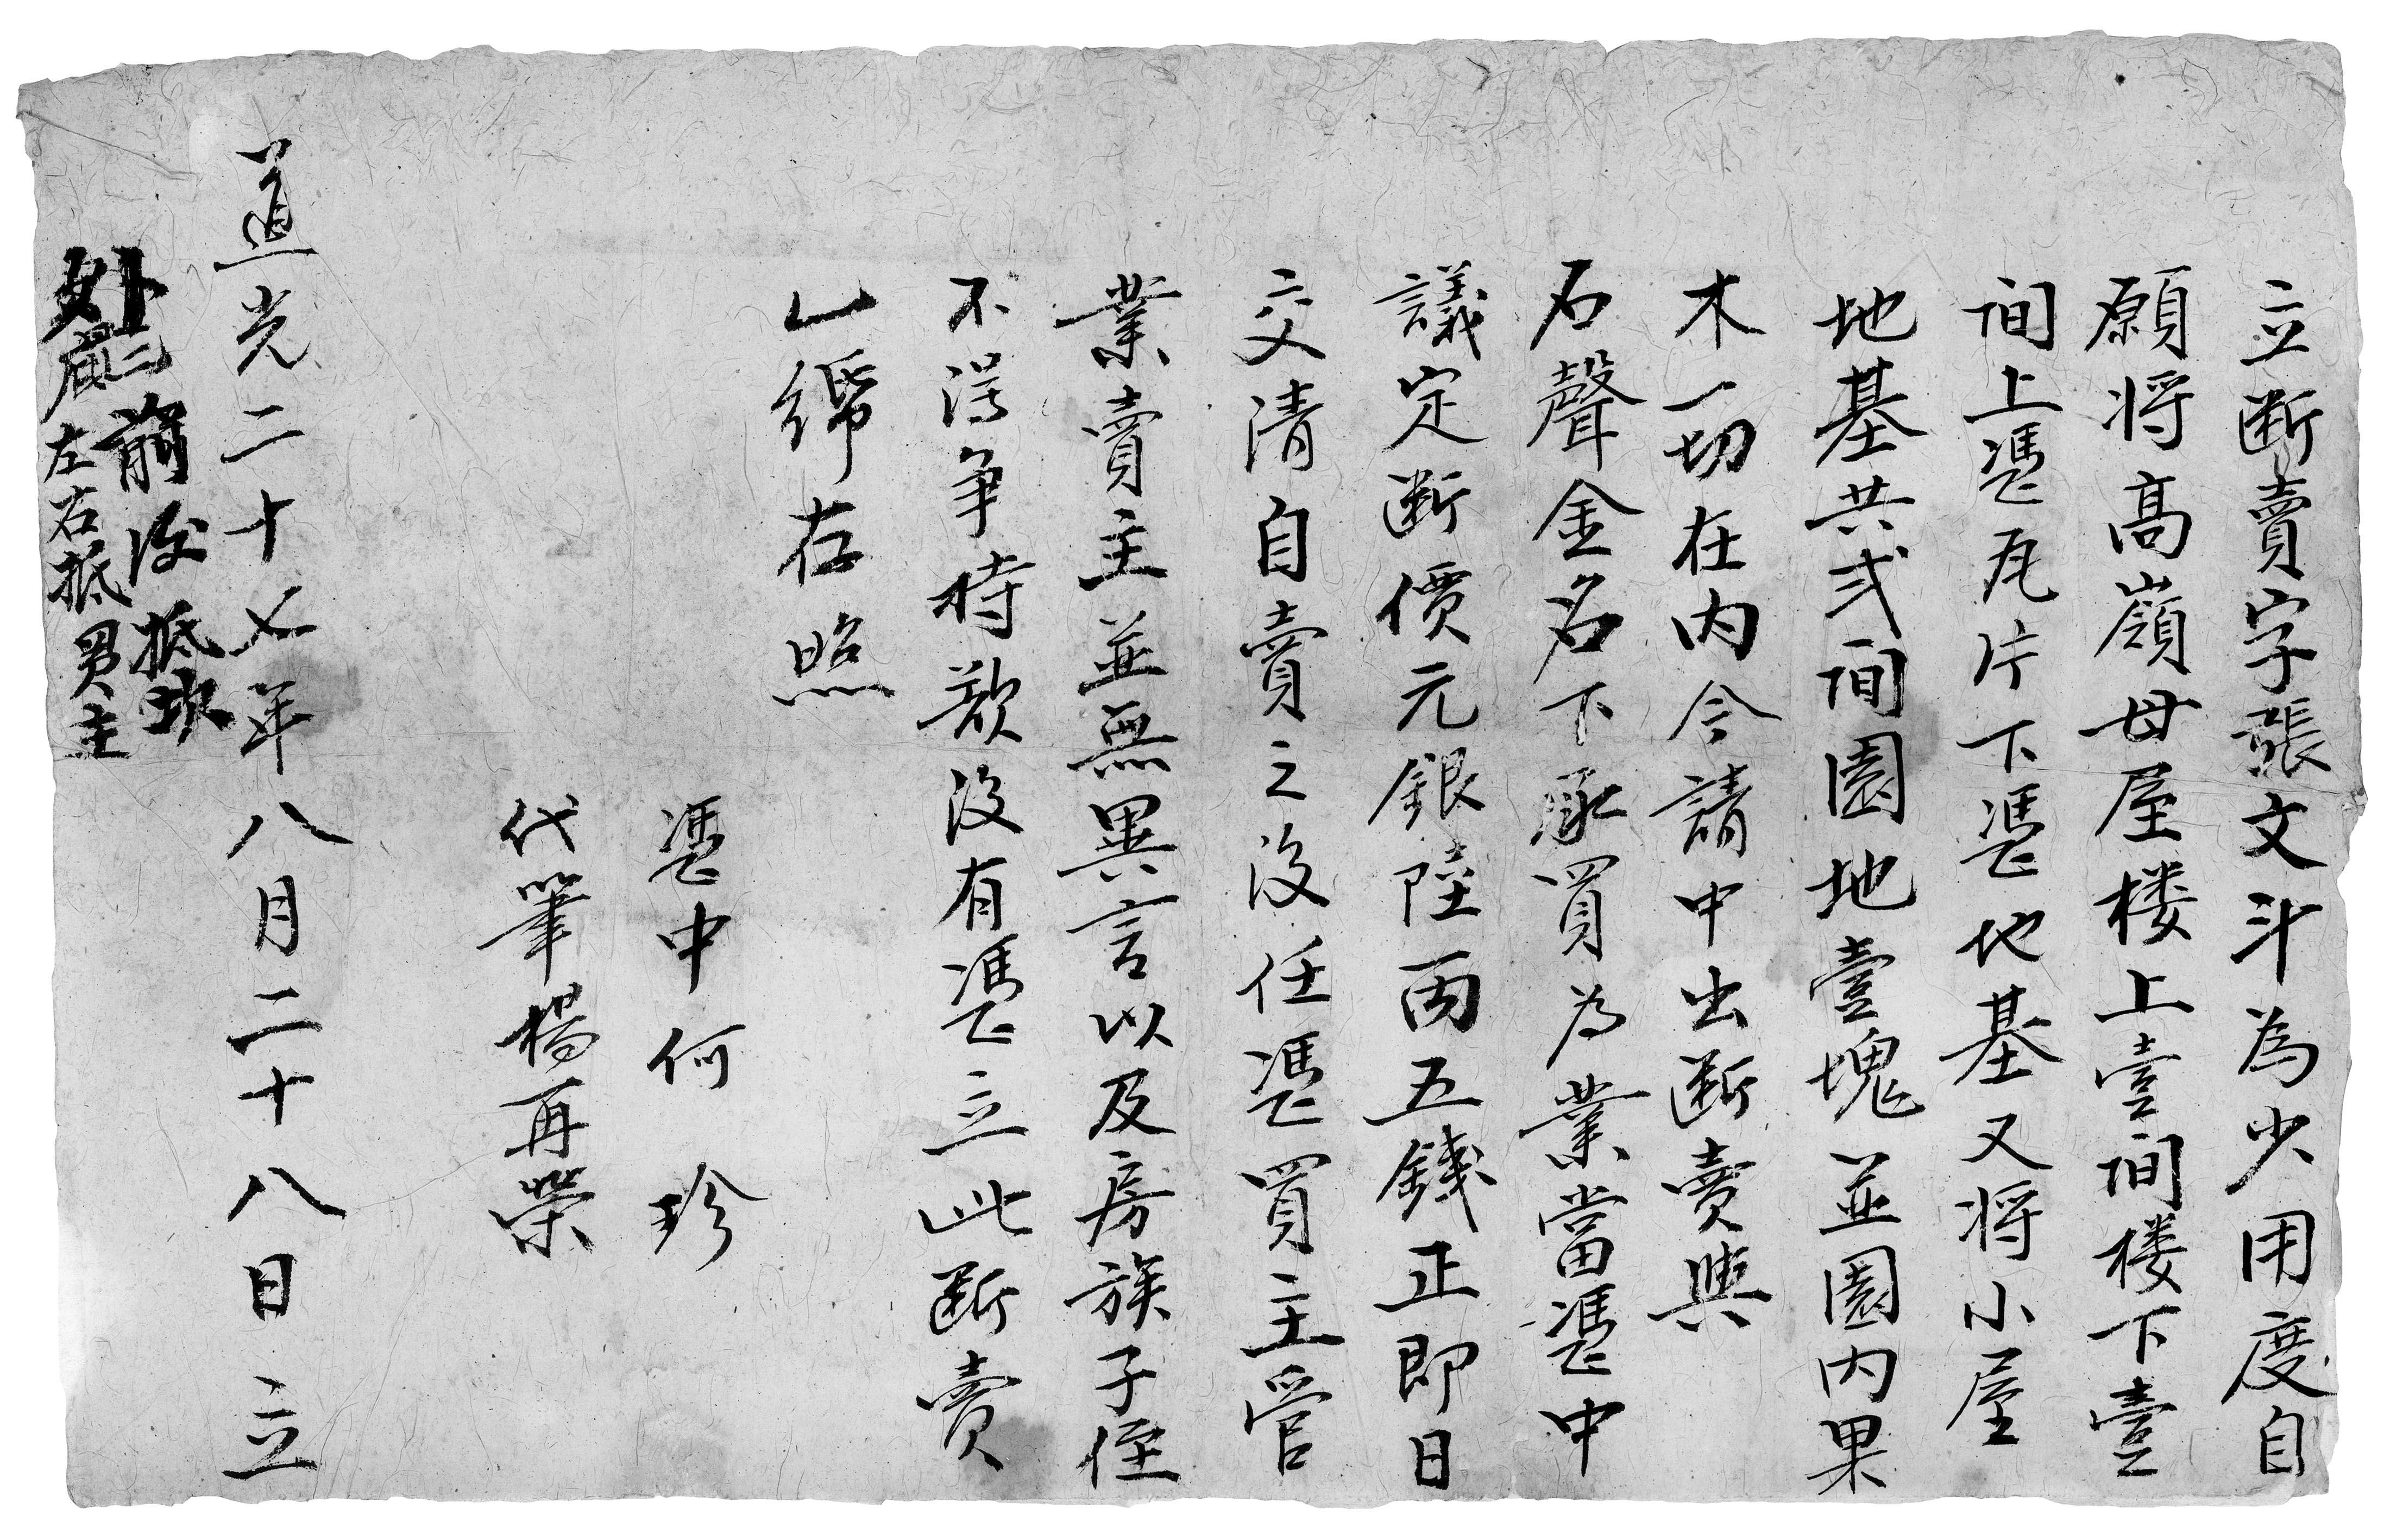 立断賣字張文斗為少用度自
願将髙嶺母屋楼上壹间楼下壹
间上慿瓦片下慿地基又将小屋
地基共弍间園地壹塊並園内果
木一切在内今請中出断賣與
石聲金名下承買為業當慿中
議定断價元銀陸両五錢正即日
交清自賣之後任慿買主管
業賣主並無異言以及房族子侄
不得争持歆後有慿立此断賣
乙綿存照
慿中何珍
代筆楊再榮
道光二十七年八月二十八日立
外批前後抵坎
左右抵買主